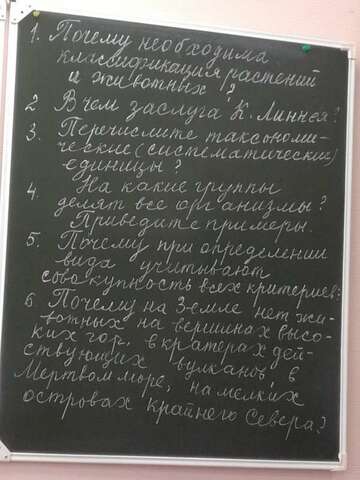 1. Почему необходима
классификация растений
и животных?
2 В чем заслуга К. Линнея?
3. Перечислите таксономи-
ческие (систематические)
единицы?
4. На какие группы
делят все организмы?
Приведите примеры.
5. Почему при определении
вида учитывают
совокупность всех критериев?
6. Почему на Земле нет жи-
вотных на вершинах высо-
ких гор, в кратерах дей-
ствующих вулканов, в
Мертвом море, на мелких
островах крайнего Севера?